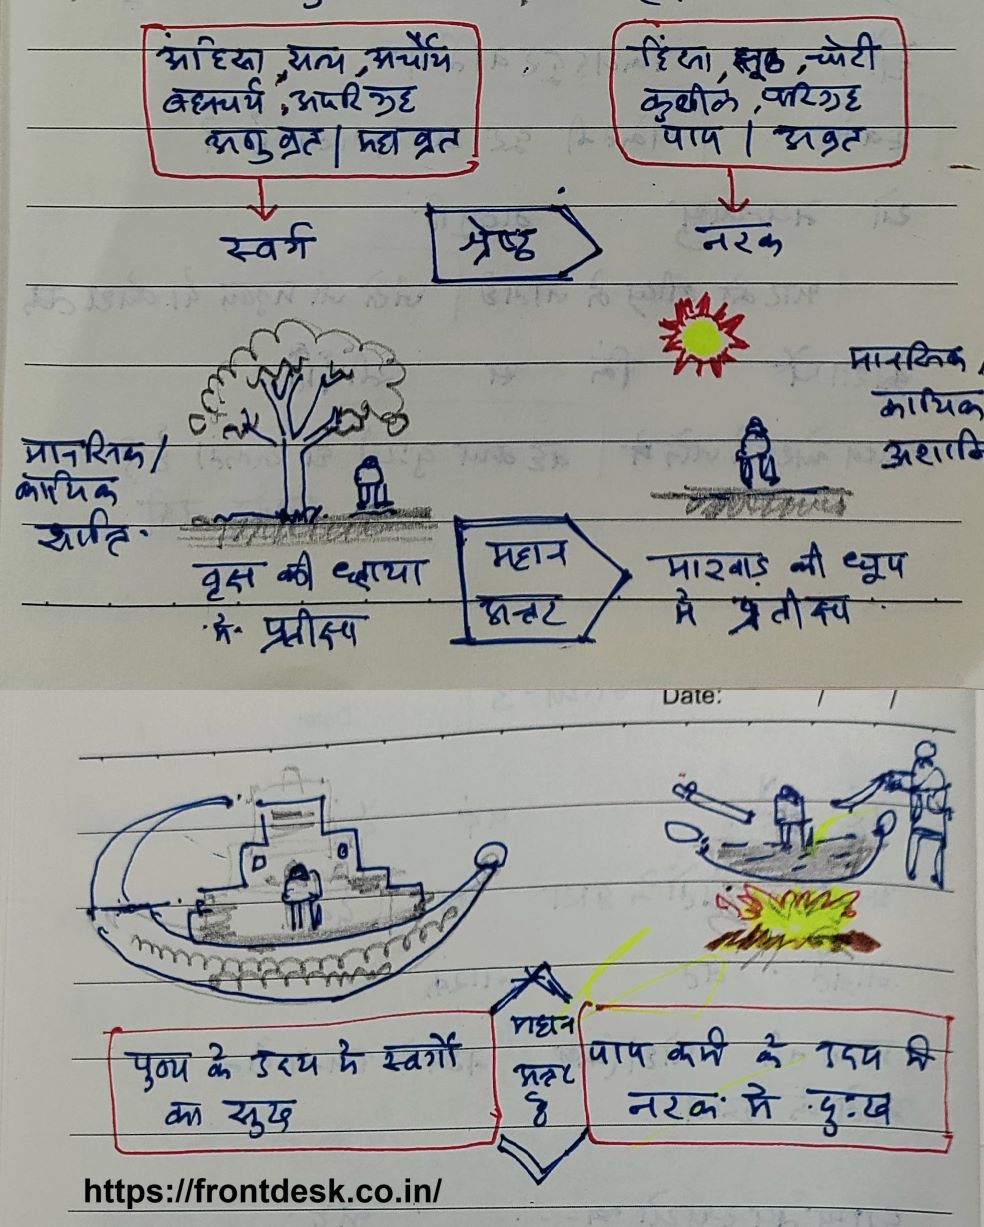 अहिंसा, सत्य, अचौर्य
ब्रह्मचर्य, अपरिग्रह
अणुव्रत | महाव्रत
हिंसा, झूठ, चोरी
कुशील, परिग्रह
पाप | अव्रत
स्वर्ग
श्रेष्ठ
नरक
मानसिक/
कायिक
शान्ति.
मानसिक/
कायिक
अशान्ति
वृक्ष की छाया
में प्रतीक्षा
महान
अन्तर
मारवाड़ की धूप
में प्रतीक्षा
Date: / /
पुण्य के उदय से स्वर्गो
का सुख
महान
अन्तर
है
पाप कर्म के उदय से
नरक में दुःख
https://frontdesk.co.in/